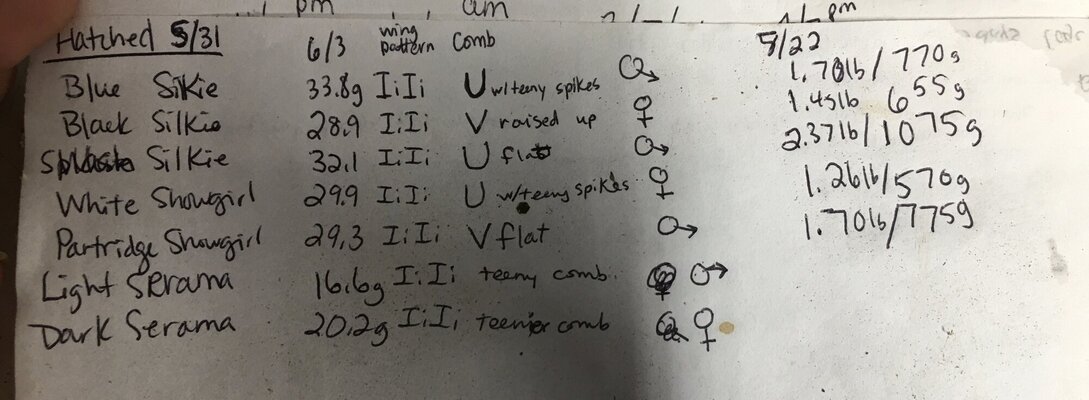 pm am pm
Hatched 5/31 6/3 wing pattern Comb 8/22
Blue Silkie 33.8g IiIi U w/teeny spikes ♂ 1.70lb/770g
Black Silkie 28.9 IiIi V raised up ♀ 1.45lb 655g
Splash Silkie 32.1 IiIi U flat ♂ 2.37lb/1075g
White Showgirl 29.9 IiIi U w/teeny spikes ♀ 1.26lb/570g
Partridge Showgirl 29.3 IiIi V flat ♂ 1.70lb/775g
Light Serama 16.6g IiIi teeny comb ♂
Dark Serama 20.2g IiIi teenier comb ♀